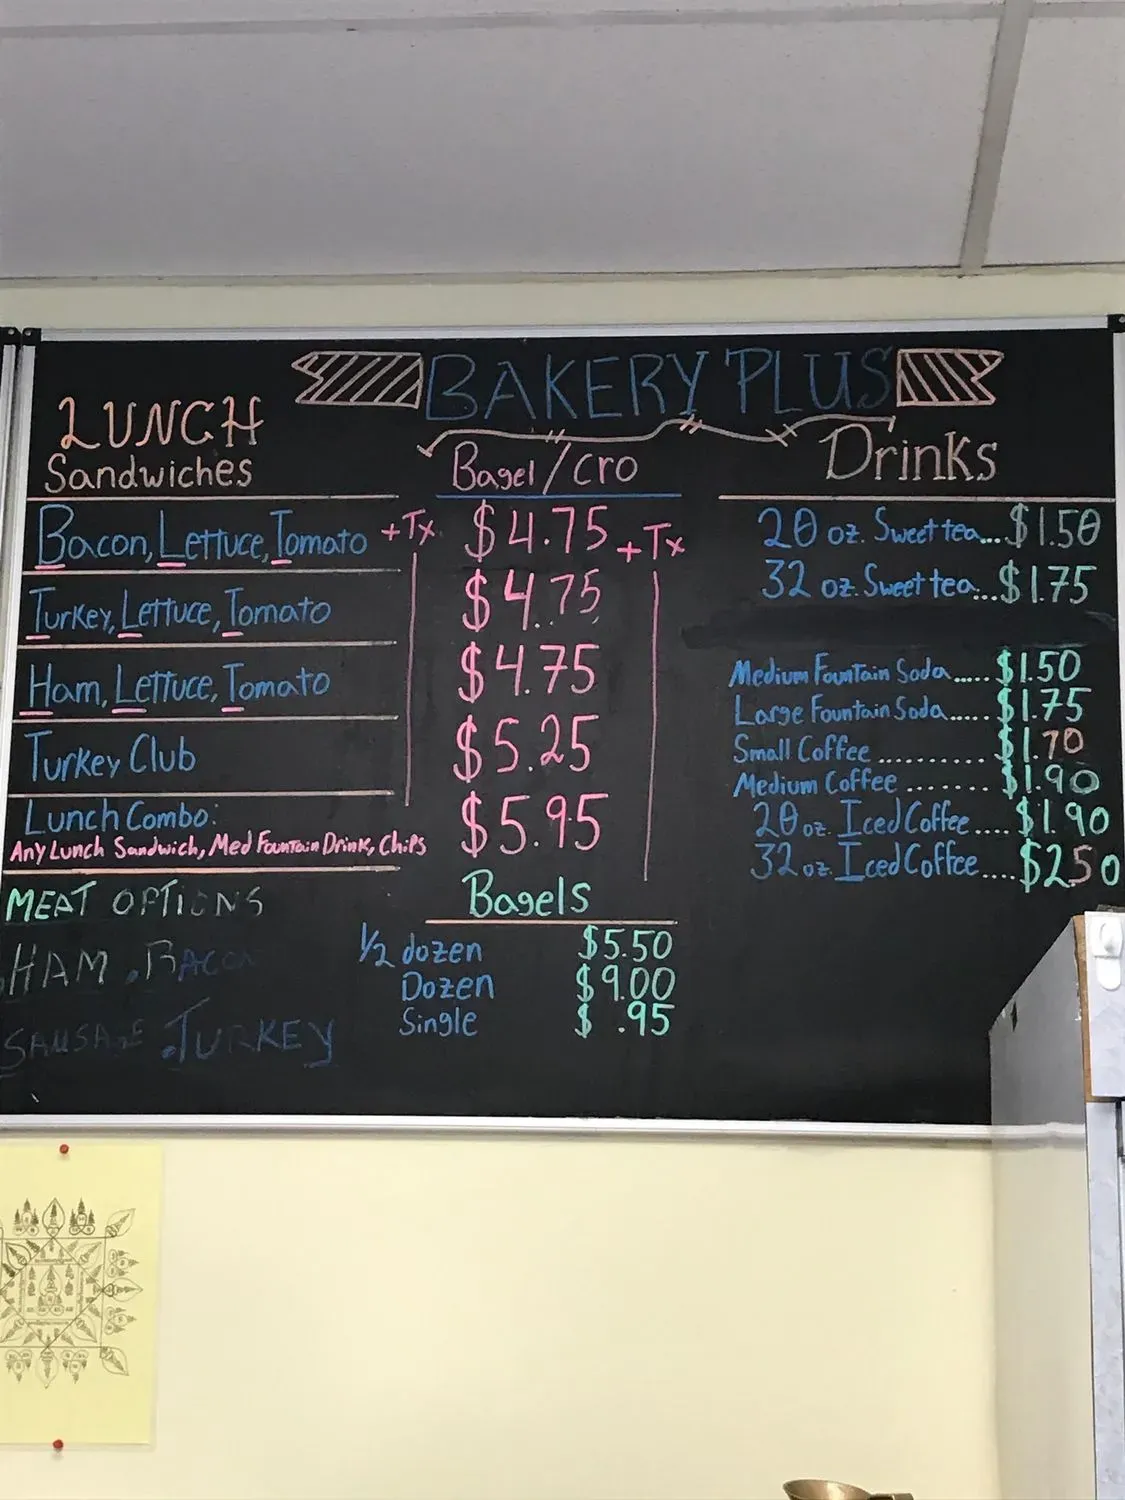 BAKERY PLUS
LUNCH
Sandwiches
Bagel/Cro
Bacon, Lettuce, Tomato +Tx $4.75 +Tx
Turkey, Lettuce, Tomato $4.75
Ham, Lettuce, Tomato $4.75
Turkey Club $5.25
Lunch Combo: $5.95
Any Lunch Sandwich, Med Fountain Drink, Chips
MEAT OPTIONS
.HAM .BACON
SAUSAGE .TURKEY
Bagels
1/2 dozen $5.50
Dozen $9.00
Single $ .95
Drinks
20 oz. Sweet tea...$1.50
32 oz. Sweet tea...$1.75
Medium Fountain Soda.....$1.50
Large Fountain Soda.....$1.75
Small Coffee ...........$1.70
Medium Coffee ........$1.90
20 oz. Iced Coffee....$1.90
32 oz. Iced Coffee....$2.50